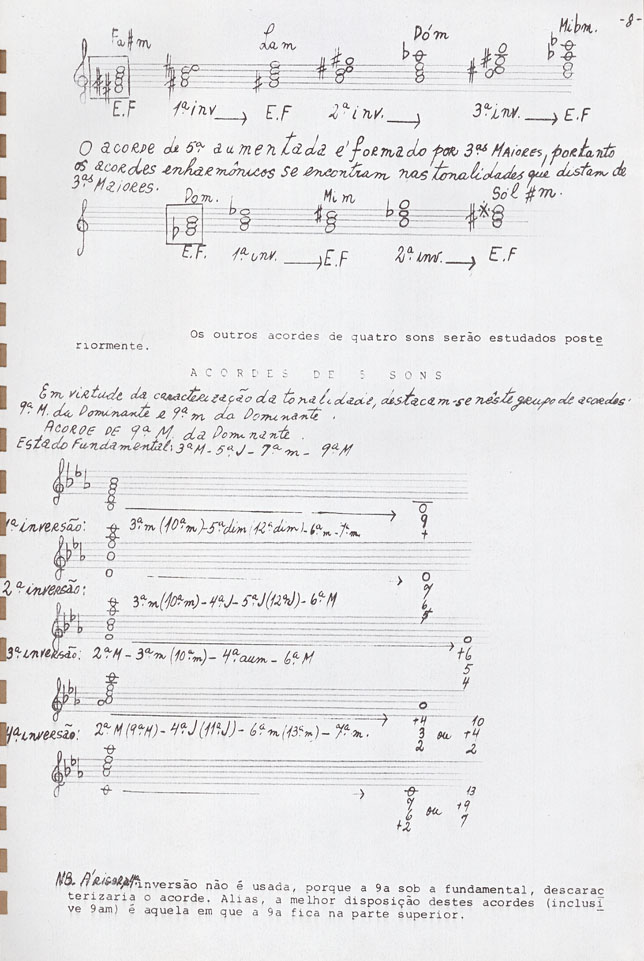 -8-
Fa#m Lam Dóm Mibm.
E.F 1ª inv E.F 2ª inv. 3ª inv. E.F
O acorde de 5ª aumentada é formado por 3ªs MAIORES, portanto
os acordes enharmônicos se encontram nas tonalidades que distam de
3ªs MAIORES.
Dom. Mim Sól #m.
E.F. 1ª inv. E.F 2ª inv. E.F
Os outros acordes de quatro sons serão estudados poste
riormente.
ACORDES DE 5 SONS
Em virtude da caracterização da tonalidade, destacam-se nêste grupo de acordes:
9ª M. da Dominante e 9ª m da Dominante.
ACORDE DE 9ª M, da Dominante.
Estado Fundamental: 3ª M - 5ª J - 7ª m - 9ª M
9
+
1ª inversão: 3ª m (10ª m) - 5ª dim (12ª dim) - 6ª m - 7ª m
7
6
5
2ª inversão: 3ª m (10ª m) - 4ª J - 5ª J (12ª J) - 6ª M
+6
5
4
3ª inversão: 2ª M - 3ª m (10ª m) - 4ª aum - 6ª M
+4 10
3 ou +4
2 2
4ª inversão: 2ª M (9ª M) - 4ª J (11ª J) - 6ª m (13ª m) - 7ª m.
7 13
6 ou +9
+2 7
NB. Á rigor, 4ª inversão não é usada, porque a 9a sob a fundamental, descarac
terizaria o acorde. Alias, a melhor disposição destes acordes (inclusi
ve 9am) é aquela em que a 9a fica na parte superior.